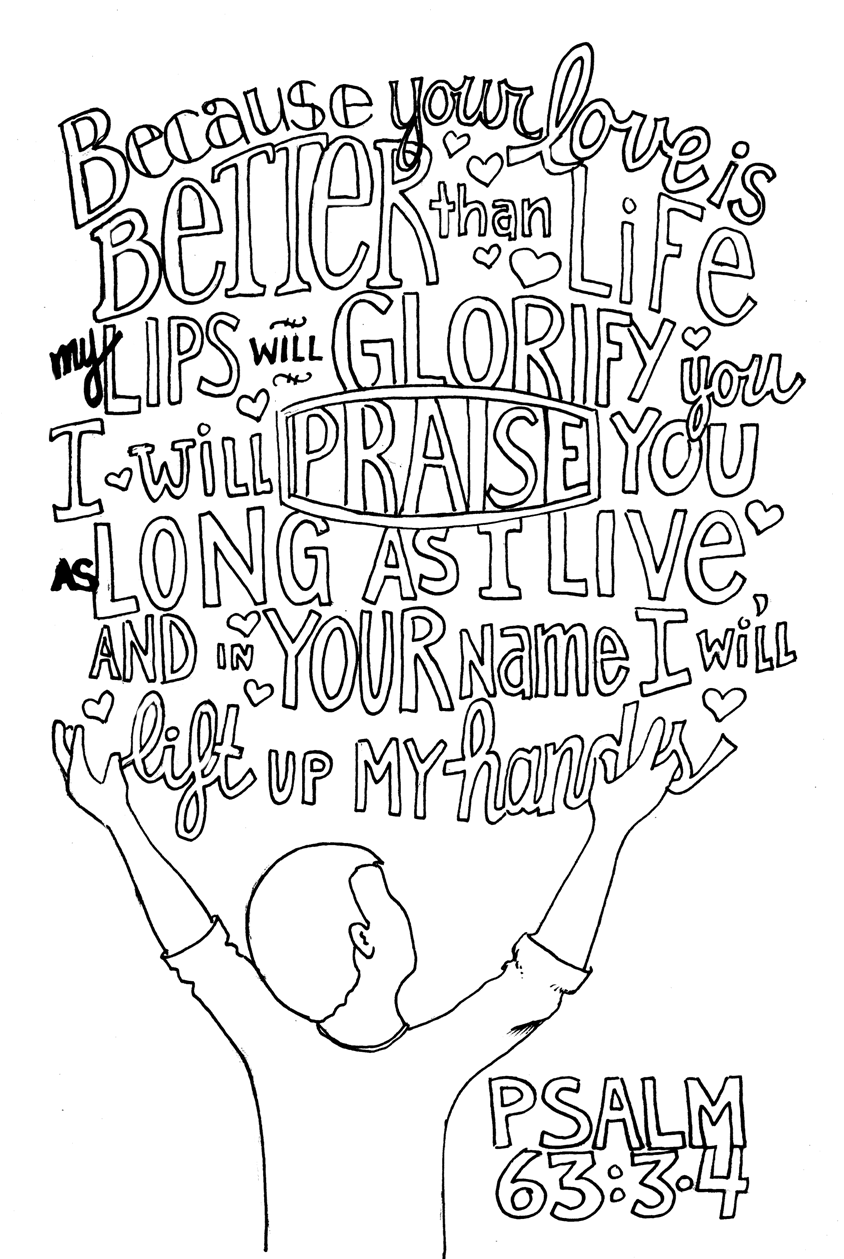 Because your love is
BeTTeR than LiFe
my LIPS WILL GLORIFY you
I will PRAISE YOU
AS LONG AS I LIVe,
AND IN YOUR Name I will
lift UP MY hands
PSALM
63:3-4